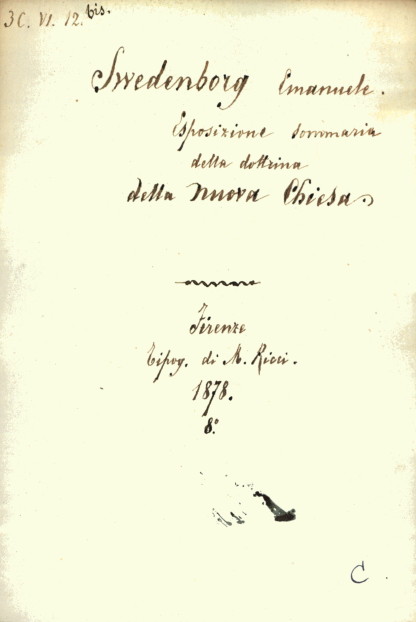 3C. VI. 12. bis.
Swedenborg Emanuele.
Esposizione sommaria
della dottrina
della Nuova Chiesa.
Firenze
Tipog. di M. Ricci.
1878.
8.°
C